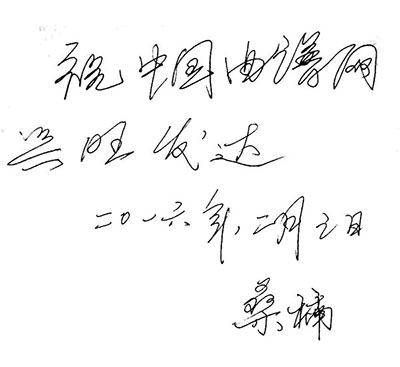 祝中国曲谱网
兴旺发达
二〇一六年,二月三日
桑楠